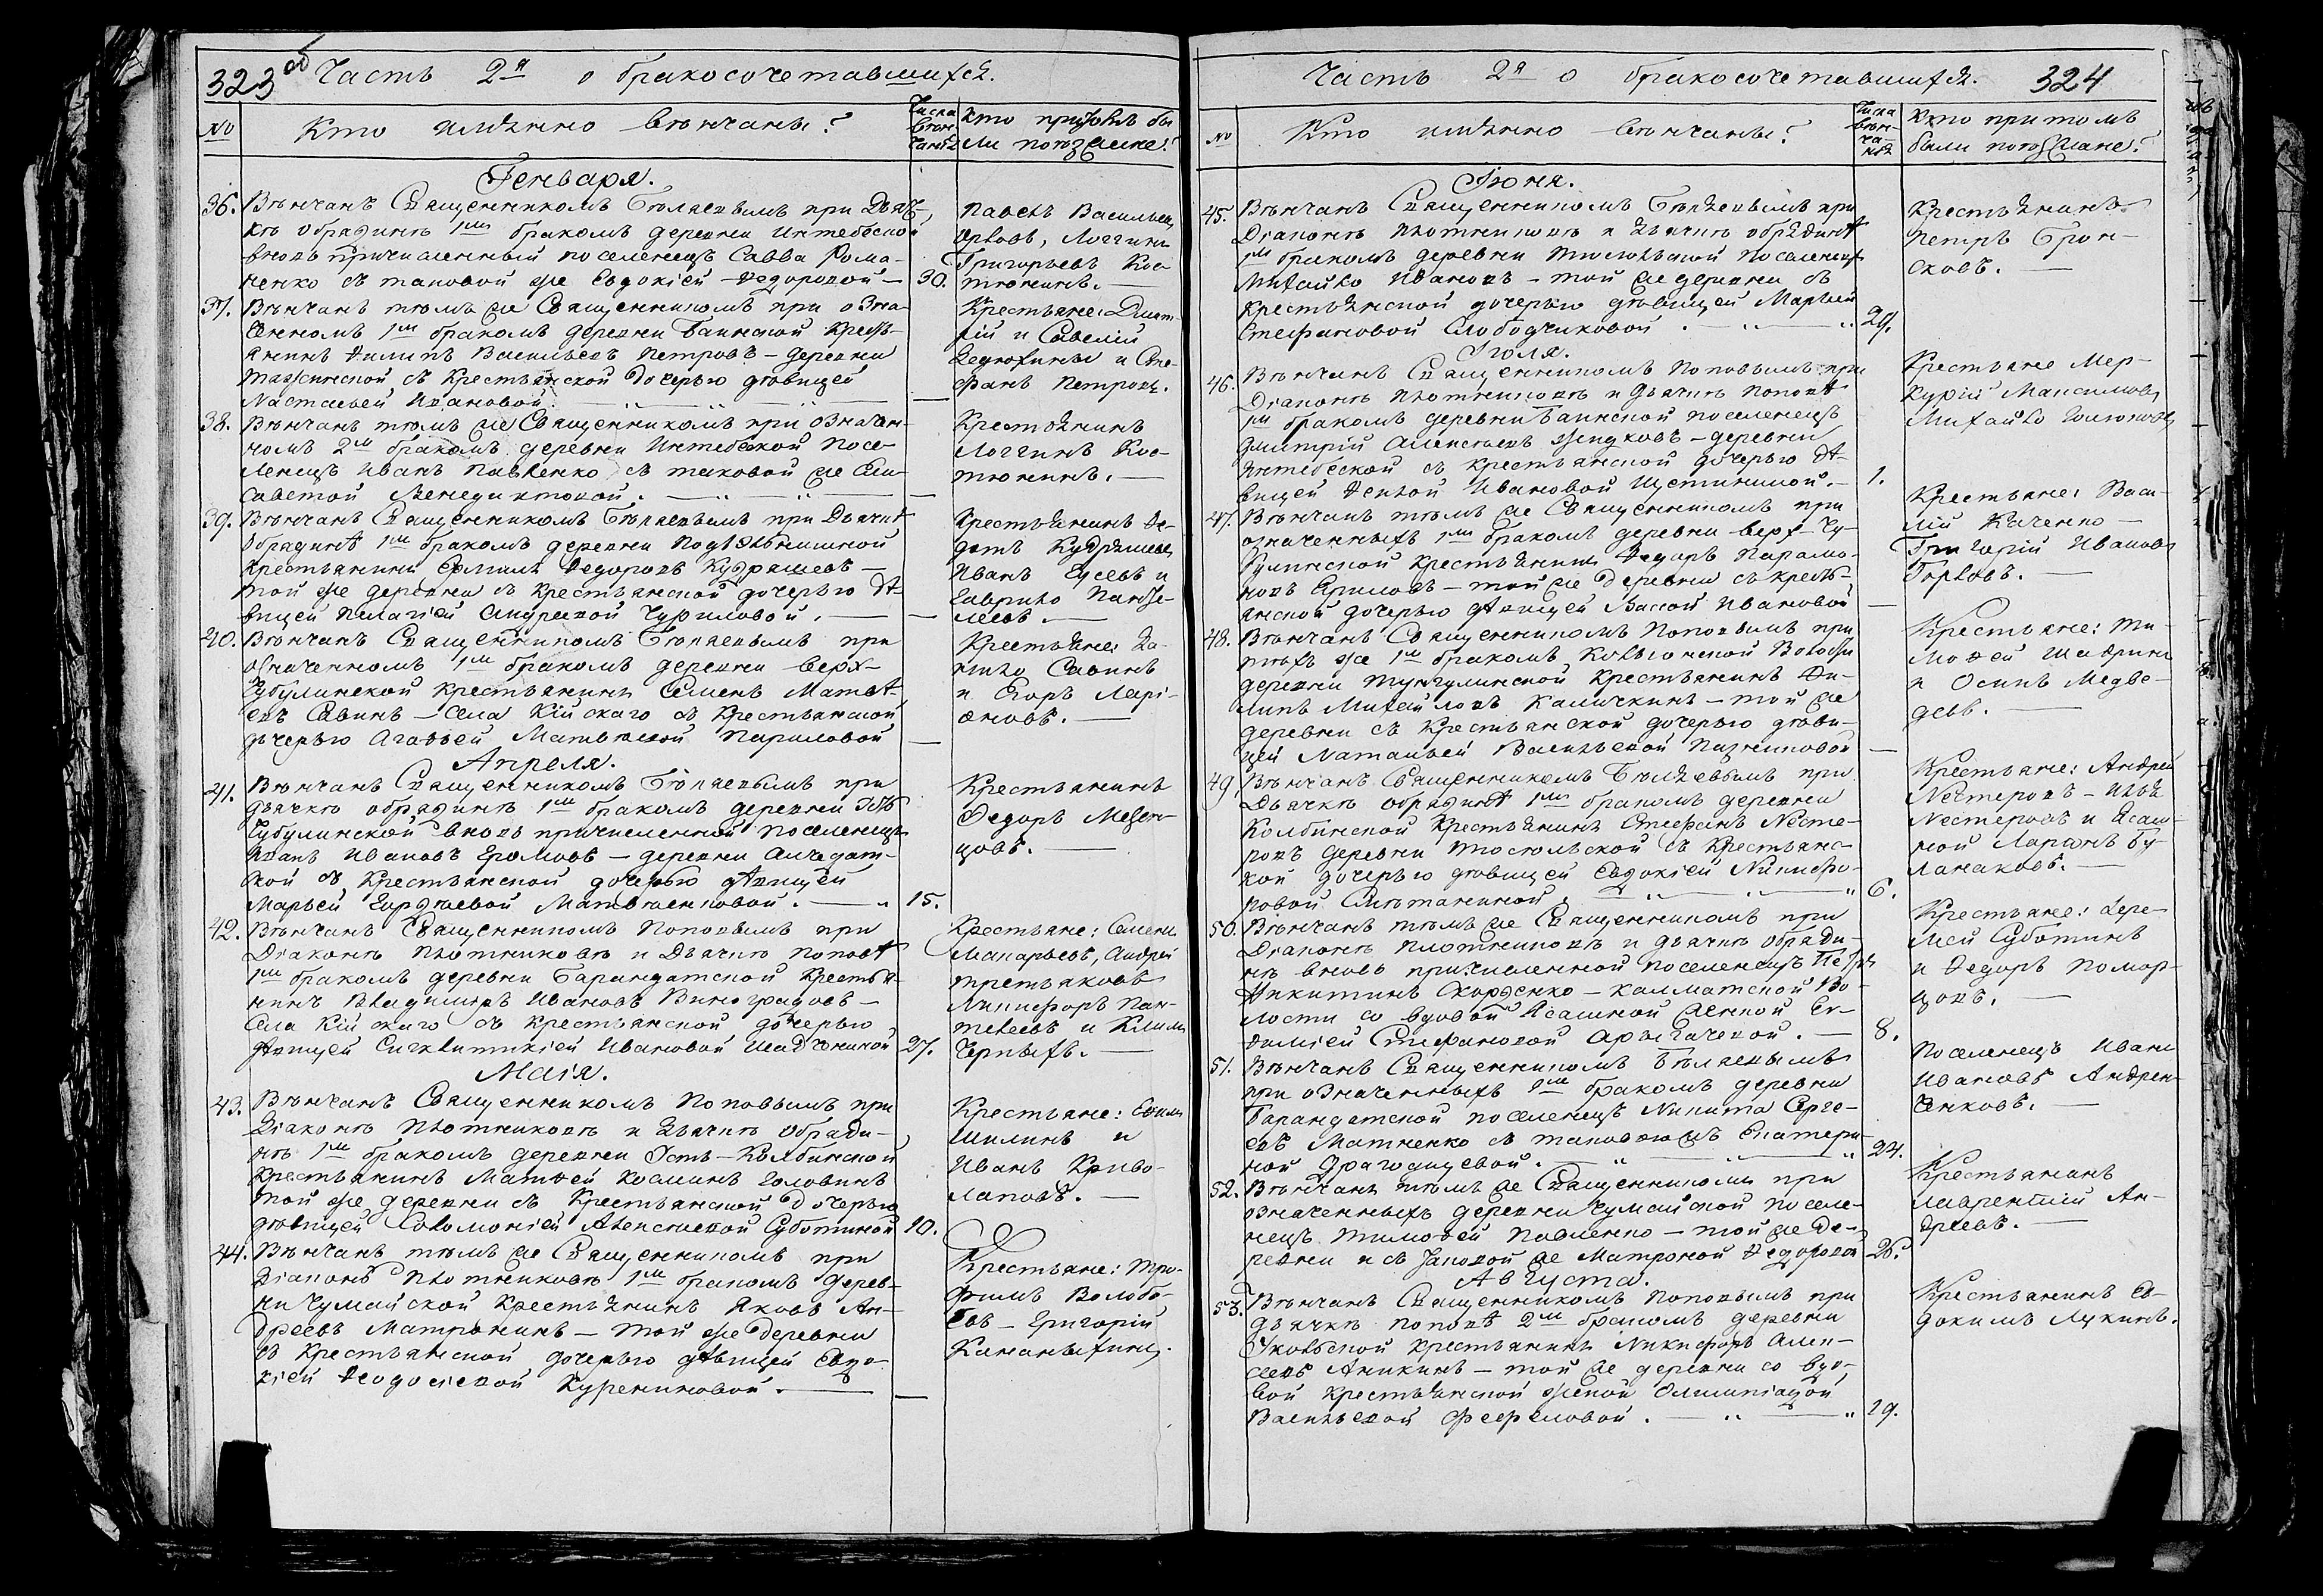 323 об
Часть 2я о бракосочетавшихся.
№ Кто имянно вѣнчаны? Числа вѣнчанія Кто при томъ были поѣзжане?
Генваря.
36. Вѣнчанъ Священникомъ Бѣляевымъ при Дьяч-
кѣ Обрядинѣ 1мъ бракомъ деревни Интебеской
вновь причисленный поселенецъ Савва Рома-
ненко съ таковой же Евдокіей Ѳедоровой — 30.
Павелъ Васильевъ
Орловъ, Логгинъ
Григорьевъ Кос-
тюнинъ. —
37. Вѣнчанъ тѣмъ же Священникомъ при озна-
ченномъ 1мъ бракомъ деревни Баинской Кресть-
янинъ Филипъ Васильевъ Петровъ — деревни
съ Крестьянской дочерью дѣвицей
Настасьей Ивановой. —
Крестьяне:
и Савелій
и Сте-
фанъ Петровъ.
38. Вѣнчанъ тѣмъ же Священникомъ при означен-
номъ 2мъ бракомъ деревни Интебской Посе-
ленецъ Иванъ Павленко съ таковой же Ели-
саветой Венедиктовой. —
Крестьянинъ
Логгинъ Кос-
тюнинъ. —
39. Вѣнчанъ Священникомъ Бѣляевымъ при Дьячкѣ
Обрядинѣ 1мъ бракомъ деревни
Крестьянинъ Ермилъ Ѳедоровъ Кудряшевъ —
той же деревни съ Крестьянской дочерью дѣ-
вицей Пелагіей Андреевой Чуриловой. —
Крестьянинъ Ѳе-
дотъ Кудряшевъ
Иванъ Гусевъ и
Гаврило Пантѣ-
леевъ. —
40. Вѣнчанъ Священникомъ Бѣляевымъ при
означенномъ 1мъ бракомъ деревни Верх-
Чубулинской Крестьянинъ Семенъ Матвѣ-
евъ Савинъ — Села Кійскаго съ Крестьянской
дочерью Агафьей Матвѣевой Париловой —
Крестьяне: Да-
нило Савинъ
и Егоръ Ларі-
оновъ. —
Апреля.
41. Вѣнчанъ Священникомъ Бѣляевымъ при
дьячкѣ Обрядинѣ 1мъ бракомъ деревни
Чубулинской вновь причисленной поселенецъ
Иванъ Ивановъ Ермовъ — деревни Алчедат-
ской съ Крестьянской дочерью дѣвицей
Марьей Матвѣенковой. — 15.
Крестьянинъ
Ѳедоръ Мезен-
цовъ. —
42. Вѣнчанъ Священникомъ Поповымъ при
Діаконѣ Плотниковѣ и Дьячкѣ Поповѣ
1мъ бракомъ деревни Барандатской Крестья-
нинъ Владиміръ Ивановъ Виноградовъ —
Села Кійскаго съ Крестьянской дочерью
дѣвицей Сигклитикіей Ивановой Шадриной 27.
Крестьяне: Семенъ
Макарьевъ, Андрей
Третьяковъ
Никифоръ Пан-
телеевъ и Климъ
Черныхъ. —
Маія.
43. Вѣнчанъ Священникомъ Поповымъ при
Діаконѣ Плотниковѣ и Дьячкѣ Обряди-
нѣ 1мъ бракомъ деревни Усть-Колбинской
Крестьянинъ Матѳей Косминъ Головинъ
той же деревни съ Крестьянской дочерью
дѣвицей Соломоніей Алексѣевой Суботиной 10.
Крестьяне:
Шилинъ и
Иванъ Криво-
лаповъ. —
44. Вѣнчанъ тѣмъ же Священникомъ при
Діаконѣ Плотниковѣ 1мъ бракомъ Дерев-
ни Чумайской Крестьянинъ Яковъ Ан-
дреевъ Матронинъ — той же деревни
съ Крестьянской дочерью дѣвицей Евдо-
кіей Ѳеодосіевой Курениновой. —
Крестьяне: Тро-
фимъ Волобо-
евъ — Григорій
Кананыхинъ.
Часть 2я о бракосочетавшихся. 324
№ Кто имянно вѣнчаны? Числа вѣнчанія Кто при томъ были поѣзжане?
Іюня.
45. Вѣнчанъ Священникомъ Бѣляевымъ при
Діаконѣ Плотниковѣ и Дьячкѣ Обрядинѣ
1мъ бракомъ деревни Тюсюльской поселенецъ
Михайло Ивановъ — той же деревни съ
Крестьянской дочерью дѣвицей Марьей
Стефановой Слободчиковой. — 29.
Крестьянинъ
Петръ Брон-
сковъ. —
Іюля.
46. Вѣнчанъ Священникомъ Поповымъ при
Діаконѣ Плотниковѣ и Дьячкѣ Поповѣ
1мъ бракомъ деревни Баинской поселенецъ
Дмитрій Алексѣевъ Жидковъ — деревни
Интебеской съ крестьянской дочерью дѣ-
вицей Ѳеклой Ивановой Щетининой. — 1.
Крестьяне Мер-
курій Максимовъ
Михайло
47. Вѣнчанъ тѣмъ же Священникомъ при
означенныхъ 1мъ бракомъ деревни Верх-Чу-
булинской Крестьянинъ Ѳедоръ Парамо-
новъ Ермовъ — той же деревни съ Кресть-
янской дочерью дѣвицей Вассой Ивановой —
Крестьяне: Васи-
лій Каченко —
Григорій Ивановъ
Горловъ. —
48. Вѣнчанъ Священникомъ Поповымъ при
тѣхъ же 1мъ бракомъ Волости
деревни Тунгулинской Крестьянинъ Фи-
липъ Михайловъ Каличкинъ — той же
деревни съ Крестьянской дочерью дѣви-
цей Натальей Васильевой
Крестьяне: Ти-
моѳей Шадринъ
и Осипъ Медве-
девъ. —
49. Вѣнчанъ Священникомъ Бѣляевымъ при
Дьячкѣ Обрядинѣ 1мъ бракомъ деревни
Колбинской Крестьянинъ Стефанъ Несте-
ровъ деревни Тюсюльской съ Крестьянс-
кой дочерью дѣвицей Евдокіей Никифо-
ровой Сметаниной. — 6.
Крестьяне: Андрей
Нестеровъ — Илья
Нестеровъ и Ясаш-
ной Ларіонъ Бу-
ланаковъ. —
50. Вѣнчанъ тѣмъ же Священникомъ при
Діаконѣ Плотниковѣ и дьячкѣ Обряди-
нѣ вновь причисленной поселенецъ Петръ
Никитинъ Скорденко — Волости со вдовой Ясашной женой Ев-
фиміей Стефановой Арыкачевой. — 8.
Крестьяне: Ере-
мей Суботинъ
и Ѳедоръ Помор-
цовъ. —
51. Вѣнчанъ Священникомъ Бѣляевымъ
при означенныхъ 1мъ бракомъ деревни
Барандатской поселенецъ Никита Серге-
евъ Матненко съ таковою жъ Екатери-
ной Драгодцевой. — 24.
Поселенецъ Иванъ
Ивановъ Андрен-
ченковъ. —
52. Вѣнчанъ тѣмъ же Священникомъ при
означенныхъ деревни Чумайской поселе-
нецъ Тимоѳей Павленко — той же Де-
ревни и съ таковой же Матроной Ѳедоровой 26.
Крестьянинъ
Лаврентій Ан-
дреевъ. —
Августа.
53. Вѣнчанъ Священникомъ Поповымъ при
дьячкѣ Поповѣ 2мъ бракомъ деревни
Уколской Крестьянинъ Никифоръ Алек-
сѣевъ Аникинъ — той же деревни со вдо-
вой крестьянской женой Олимпіадой
Васильевой Фефеловой. — 29.
Крестьянинъ Ев-
докимъ Лукинъ.